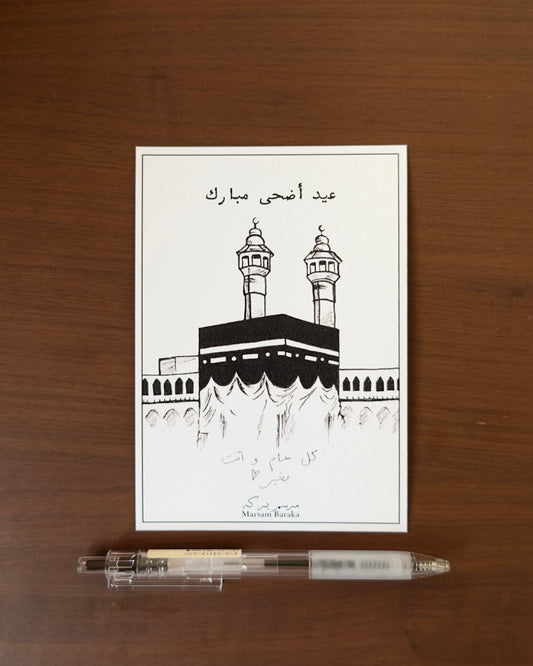 عيد أضحى مبارك
كل عام و أنت
بخير
مرسم بركة
Marsam Baraka